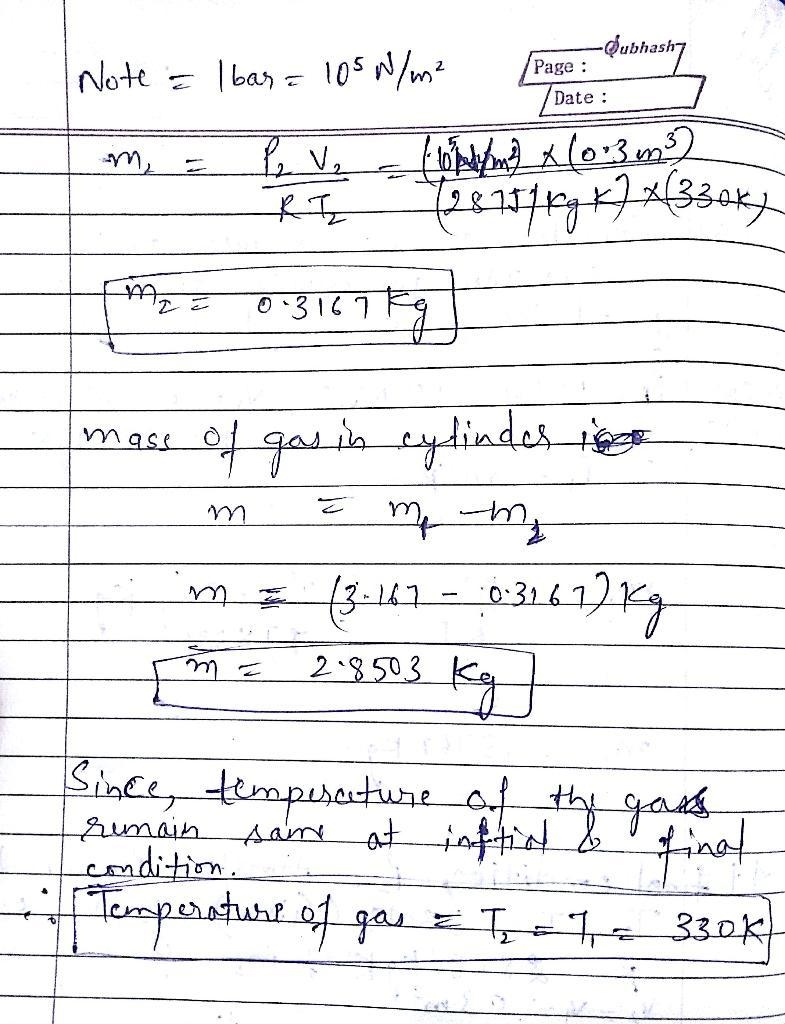 Subhash
Page :
Date :
Note = 1bar = 10⁵ N/m²
m₂ = P₂ V₂ / R T₂ = (10⁵ N/m²) × (0.3 m³) / (287 J/kg K) × (330K)
m₂ = 0.3167 kg
mass of gas in cylinder is
m = m₁ - m₂
m = (3.167 - 0.3167) kg
m = 2.8503 kg
Since, temperature of the gas
remain same at initial & final
condition.
∴ Temperature of gas = T₂ = T₁ = 330K